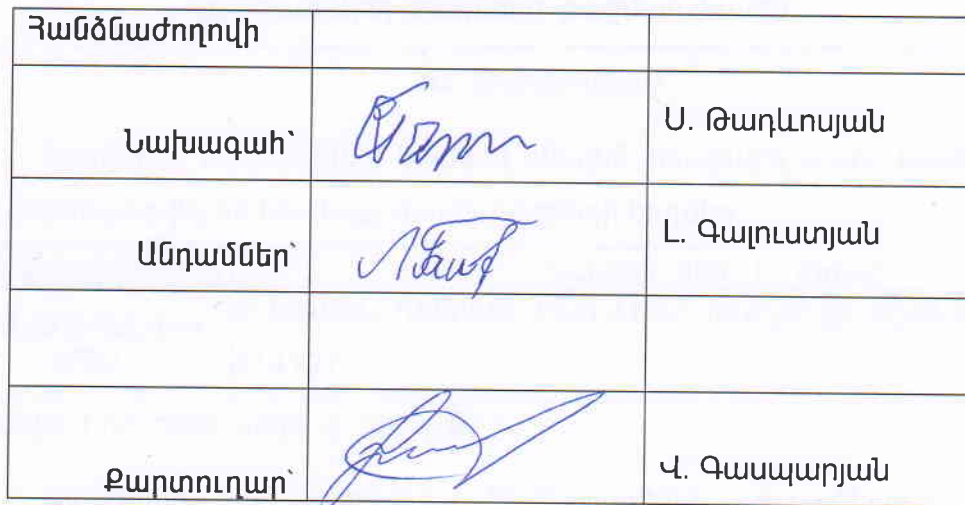 Հանձնաժողովի
Նախագահ՝ Ս. Թադևոսյան
Անդամներ՝ Լ. Գալուստյան
Քարտուղար՝ Վ. Գասպարյան